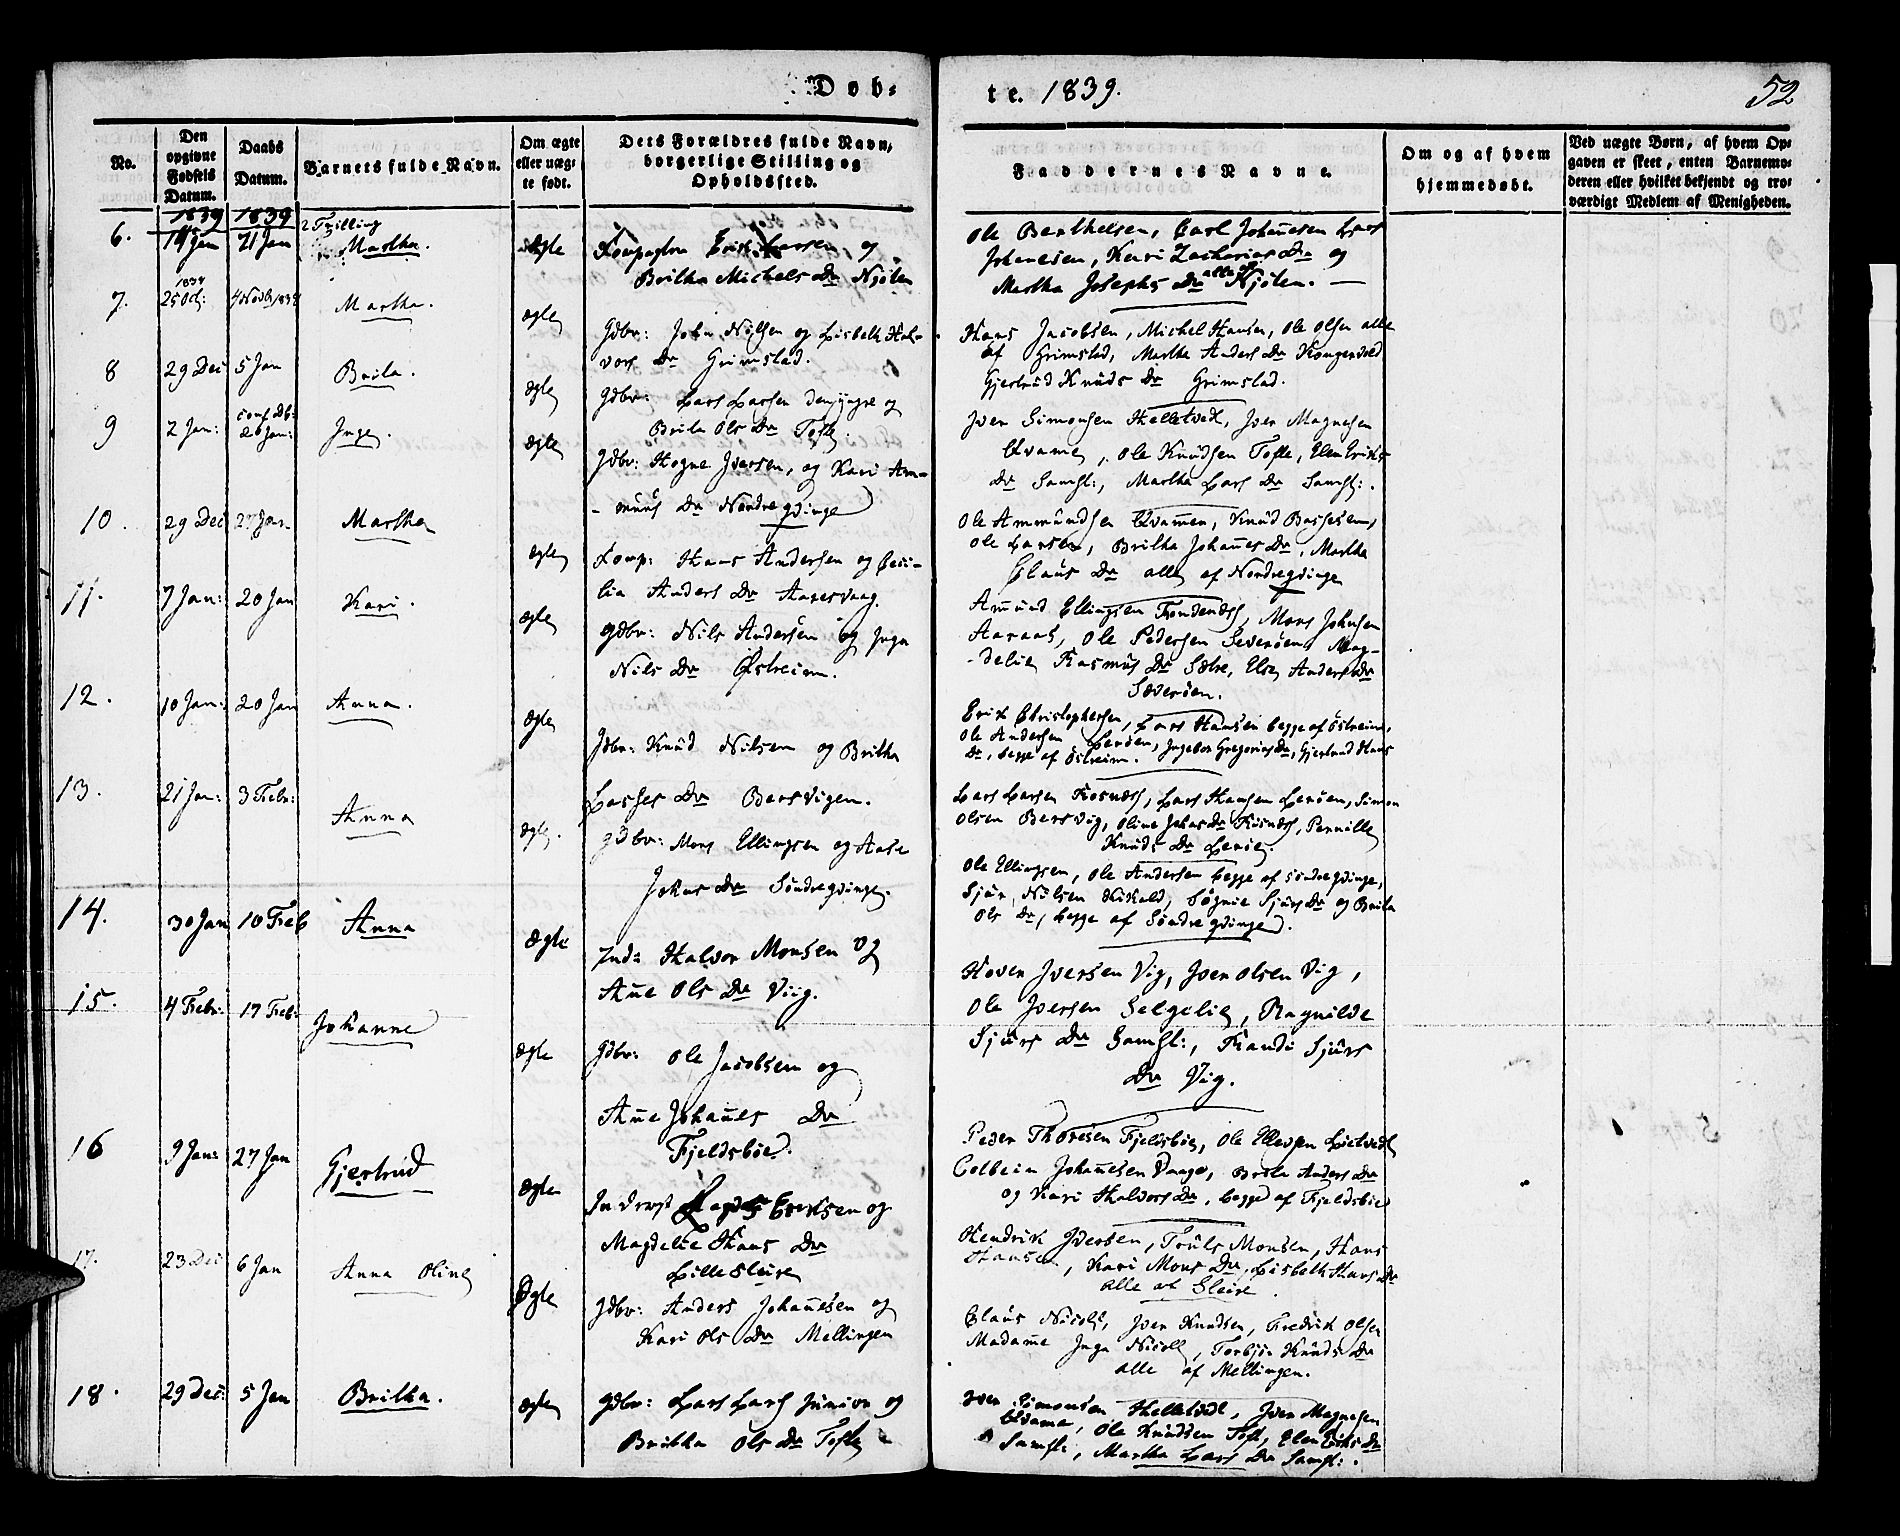 Døb-
te. 1839.
52
No.
Den opgivne Fødsels Datum.
Daabs Datum.
Barnets fulde Navn.
Om ægte eller uægte født.
Dets Forældres fulde Navn, borgerlige Stilling og Opholdssted.
Faddernes Navne.
Om og af hvem hjemmedøbt.
Ved uægte Børn, af hvem Opgaven er skeet, enten Barnemoderen eller hvilket bekjendt og troværdigt Medlem af Menigheden.
1839 1839
6. 14 Jan 21 Jan Martha. Ægte
Erik Larsen og
Britha Michels Dr Njølen
Ole Berthelsen, Carl Johanesen Lars
Johanesen, Kari Zacharias Dr og
Martha Josephs Dr alle af Njølen.
7. 25 Oct: Martha. ægte
Gdbr: John Nilsen og Lisbeth Hal-
vors Dr Grimstad.
Hans Jacobsen, Michel Hansen, Ole Olsen alle
af Grimstad, Martha Anders Dr
Gjertrud Knuds Dr Grimstad.
8 29 Dec 5 Jan Brita. ægte
Gdbr: Lars Larsen den yngre og
Brita Ols Dr Tofte.
Iver Simonsen Helletvedt, Iver Magnesen
Qvame, Ole Knudsen Tofte, Elen Eriks
Dr Samst:, Martha Lars Dr Samst:.
9 2 Jan: 20 Jan: Inge. ægte
Gdbr: Hogne Iversen, og Kari Am-
-munds Dr Nordre Gdinge
Ole Ammundsen Qvamen, Knud Bassesen,
Ole Larsen, Britha Johanes Dr, Martha
Claus Dr alle af Nordregdinge
10. 29 Dec 27 Jan Martha ægte
Hans Andersen og Ceci-
lia Anders Dr Aaresvaag.
Amund Ellingsen Trondenæs, Mons Johnsen
Aaraas, Ole Pedersen Severøen, Mag-
-delie Rasmus Dr Sælre, Else Anders Dr
Sæverøen.
11. 7 Jan: 20 Jan Kari. ægte
Gdbr: Nils Andersen og Inga
Nils Dr Østreim.
Erik Christophersen, Lars Hansen begge af Østreim,
Ole Andersen Lerøen, Ingebor Gregorius Dr, Gjertrud Hans
Dr, begge af Østreim.
12. 10 Jan: 20 Jan Anna. ægte
Gdbr: Knud Nilsen og Britha
Lasses Dr Bersvigen.
Lars Larsen Rosnæs, Lars Hansen Lerøen, Simon
Olsen Bersvig, Oline Johns Dr Rosnæs, Pernille
Knuds Dr Lerie.
13. 21 Jan: 3 Febr: Anna ægte.
Gdbr: Mons Ellingsen og Aase
Johns Dr Søndre Gdinge.
Ole Ellingsen, Ole Andersen begge af Søndre Gdinge,
Sjur Nilsen, Søgnie Sjurs Dr og Brita
Ols Dr, begge af Søndre Gdinge.
14. 30 Jan 10 Feb Anna Ægte
Inds Halvor Monsen og
Ane Ols Dr Viig.
Hover Iversen Vig, Iver Olsen Vig,
Ole Iversen Selgelie, Ragnilde
Sjurs Dr Samst:, Randi Sjurs
Dr Vig.
15. 4 Febr: 17 Feb: Johanne ægte
Gdbr: Ole Jacobsen og
Ane Johanes Dr
Fjeldsbøe.
Peder Thoresen Fjeldsbøe, Ole Ellevsen
Colbein Johanesen Vaage, Brite Anders Dr
og Kari Halvors Dr, begge af Fjeldsbøe
16 9 Jan: 27 Jan Gjertrud ægte
Inderst Eriksen og
Magdelie Hans Dr
Lille Sleire
Hendrik Iversen, Truls Monsen, Hans
Hansen, Kari Mons Dr, Lisbeth Hans Dr
alle af Sleire.
17. 23 Dec 6 Jan Anna Oline Ægte
Gdbr: Anders Johanesen og
Kari Ols Dr Mellingen
Claus Nicols, Iver Knudsen, Fredrik Olsen
Madame Inga Nicols, Torbjør Knuds Dr
alle af Mellingen.
18. 29 Dec: 5 Jan Britha. ægte
Gdbr: Lars Lars Junior og
Britha Ols Dr Tofte
Iver Simonsen Helletvedt, Iver Magnesen
Qvame, Ole Knudsen Toft, Elen Eriks Dr
Samst:, Martha Lars Dr Samst:.